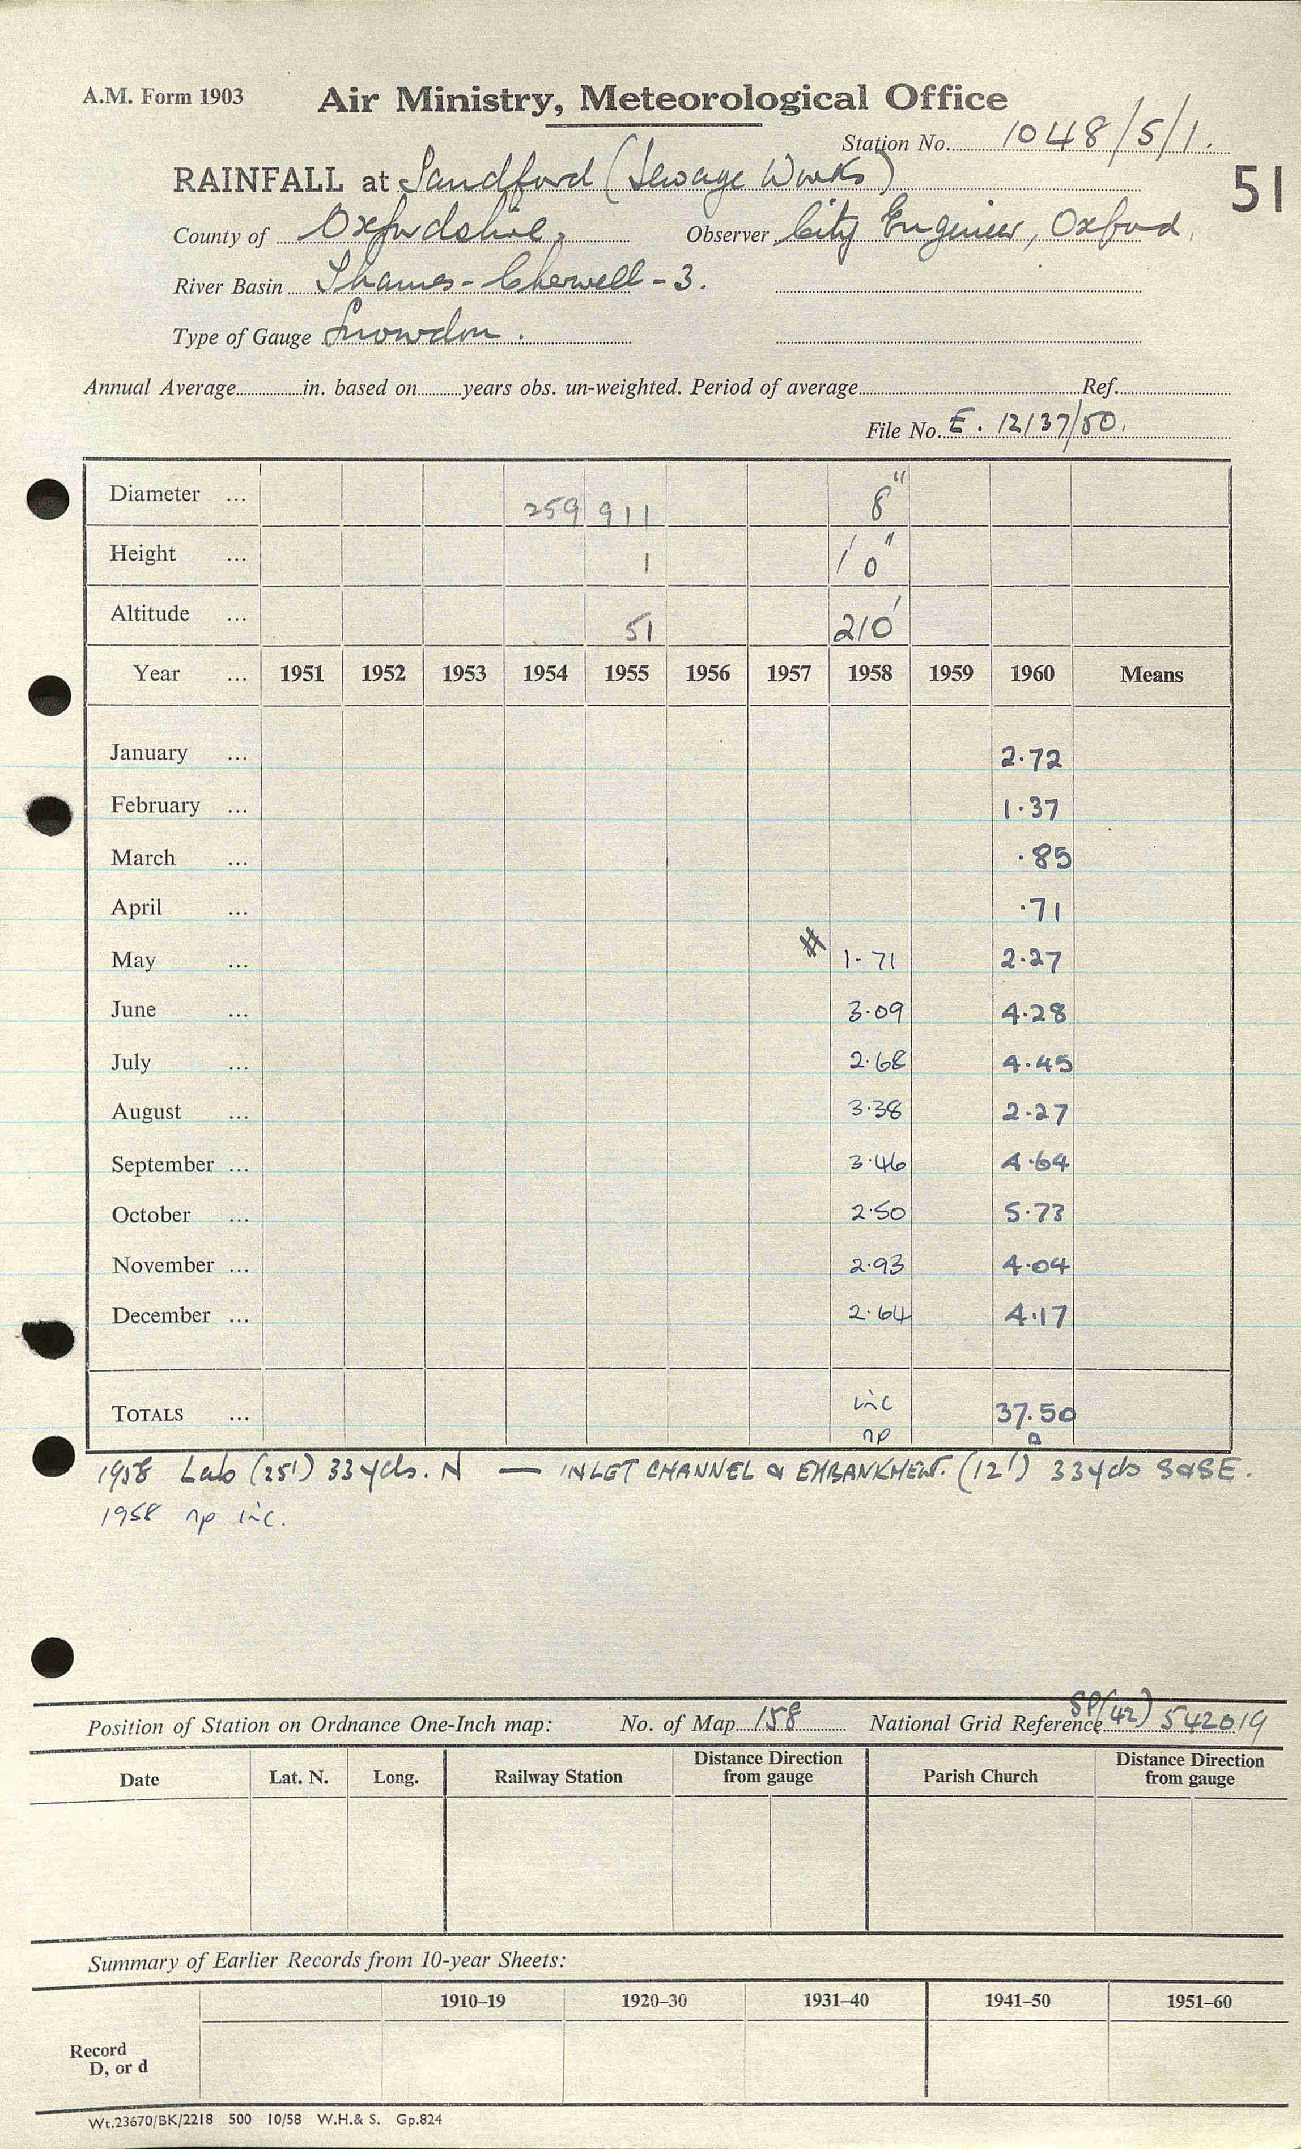 A.M. Form 1903
Air Ministry, Meteorological Office
Station No. 1048/5/1.
RAINFALL at Sandford (Sewage Works)
51
County of Oxfordshire. Observer City Engineer, Oxford.
River Basin Thames - Cherwell - 3.
Type of Gauge Snowdon.
Annual Average in. based on years obs. un-weighted. Period of average Ref.
File No. E. 12137/50.
Diameter ... 259 911 8"
Height ... 1 1' 0"
Altitude ... 51 210'
Year ... 1951 1952 1953 1954 1955 1956 1957 1958 1959 1960 Means
January ... 2.72
February ... 1.37
March ... .85
April ... .71
May ... # 1.71 2.27
June ... 3.09 4.28
July ... 2.68 4.45
August ... 3.38 2.27
September ... 3.46 4.64
October ... 2.50 5.73
November ... 2.93 4.04
December ... 2.64 4.17
TOTALS ... inc 37.50
np a
1958 Lab (25') 33yds. N — INLET CHANNEL & EMBANKMENT. (12') 33yds S&SE.
1958 np inc.
Position of Station on Ordnance One-Inch map: No. of Map 158 National Grid Reference SP(42) 542019
Date Lat. N. Long. Railway Station Distance Direction from gauge Parish Church Distance Direction from gauge
Summary of Earlier Records from 10-year Sheets:
1910–19 1920–30 1931–40 1941–50 1951–60
Record
D, or d
Wt.23670/BK/2218 500 10/58 W.H.& S. Gp.824